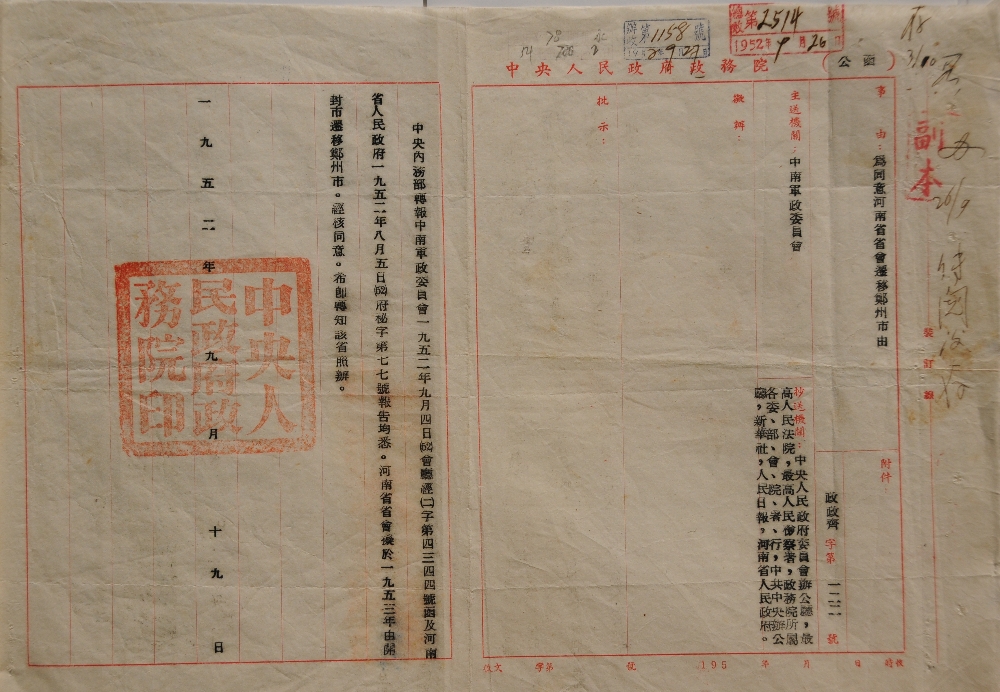 第2514號
1952年9月26日
第1158號
中央人民政府政務院
(公函)
副本
裝訂線
事由：為同意河南省省會遷移鄭州市由
附件：
政政齊字第一二二號
主送機關：中南軍政委員會
抄送機關：中央人民政府委員會辦公廳，最
高人民法院，最高人民檢察署，政務院所屬
各委、部、會、院、署、行，中共中央辦公
廳，新華社，人民日報，河南省人民政府。
擬辦：
批示：
中央內務部轉報中南軍政委員會一九五二年九月四日(52)會廳經(二)字第四三四四號函及河南
省人民政府一九五二年八月五日(52)府秘字第七七號報告均悉。河南省省會擬於一九五三年由開
封市遷移鄭州市。經核同意。希即轉知該省照辦。
一九五二年九月十九日
中央人民政府政務院印
文 字第 號 195 年 月 日